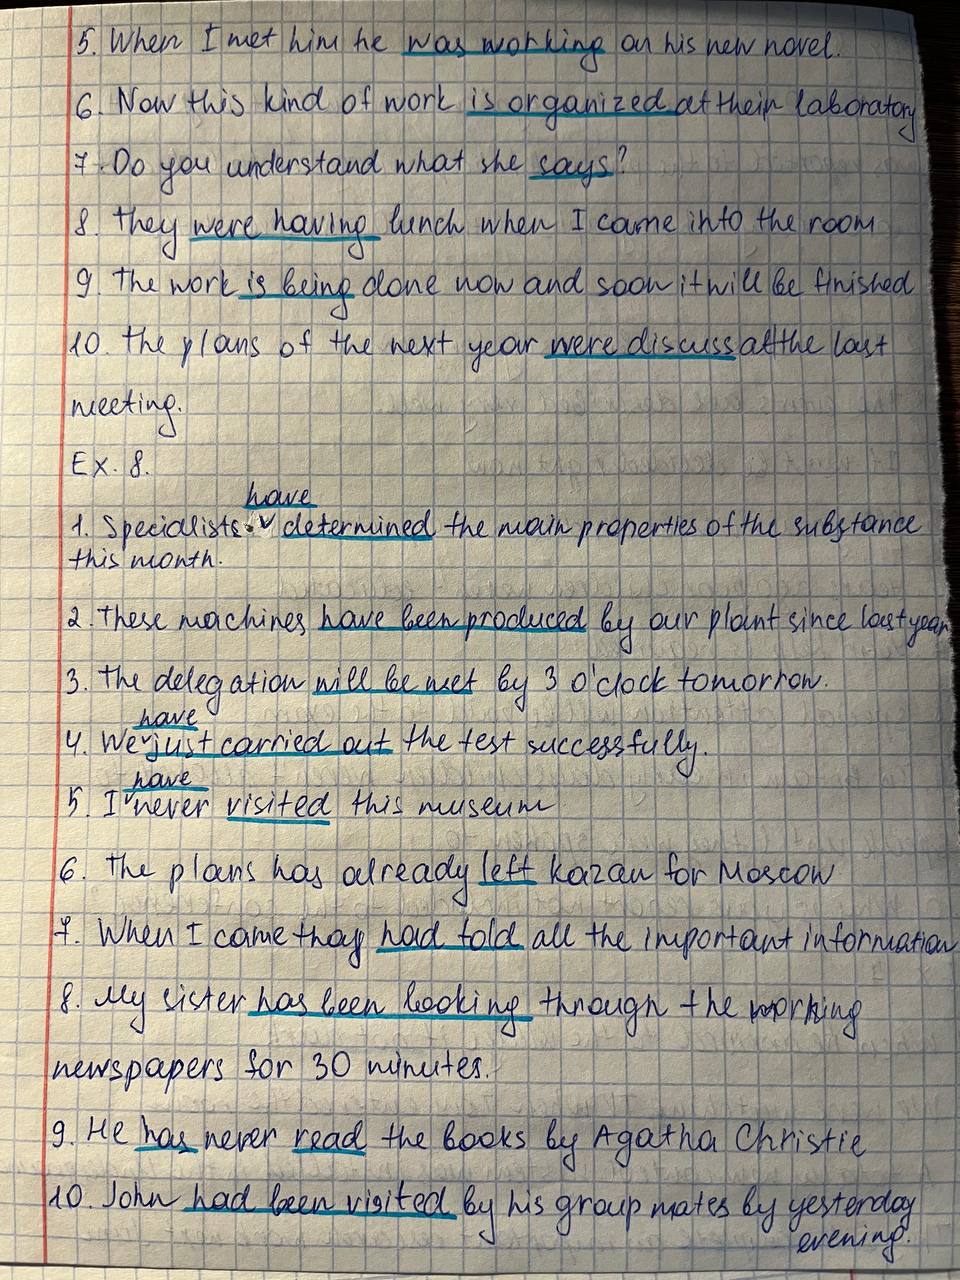 5. When I met him he was working on his new novel.
6. Now this kind of work is organized at their laboratory
7. Do you understand what she says?
8. They were having lunch when I came into the room
9. The work is being done now and soon it will be finished
10. The plans of the next year were discuss at the last
meeting.
Ex. 8.
have
1. Specialists determined the main properties of the substance
this month.
2. These machines have been produced by our plant since last year
3. The delegation will be met by 3 o'clock tomorrow.
have
4. We just carried out the test successfully.
have
5. I never visited this museum
6. The plans has already left Kazan for Moscow
7. When I came thay had told all the important information
8. My sister has been looking through the
newspapers for 30 minutes.
9. He has never read the books by Agatha Christie
10. John had been visited by his group mates by yesterday
evening.